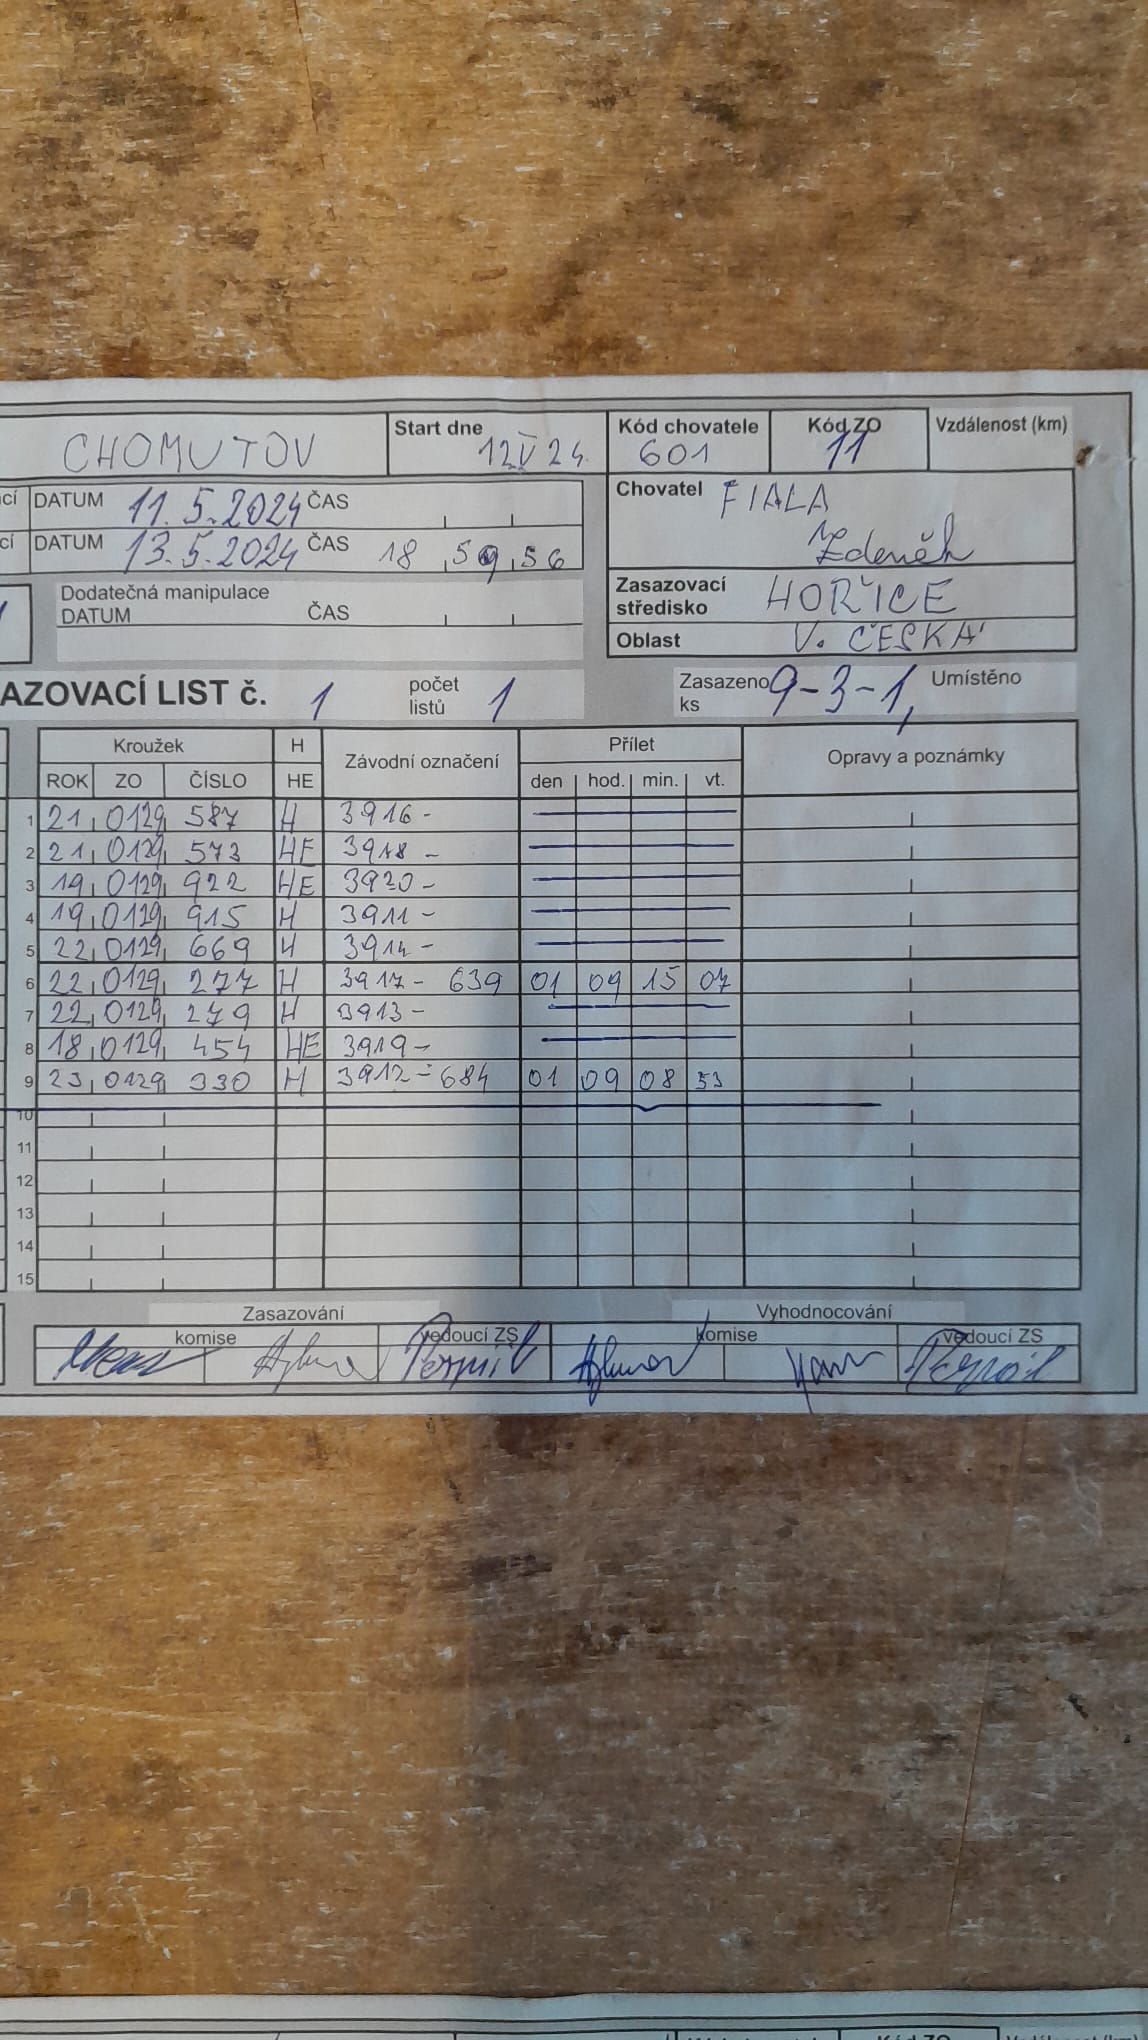 CHOMUTOV Start dne 12 V 24. Kód chovatele 601 Kód ZO 11 Vzdálenost (km)
cí DATUM 11.5.2024 ČAS
cí DATUM 13.5.2024 ČAS 18 59 56
Chovatel FIALA
Zdeněk
Dodatečná manipulace
DATUM ČAS
Zasazovací
středisko HOŘICE
Oblast V. ČESKÁ
AZOVACÍ LIST č. 1 počet listů 1 Zasazeno ks 9-3-1, Umístěno
Kroužek H Závodní označení Přílet Opravy a poznámky
ROK ZO ČÍSLO HE den hod. min. vt.
1 21 0129 587 H 3916 -
2 21 0129 573 HE 3918 -
3 19 0129 922 HE 3920 -
4 19 0129 915 H 3911 -
5 22 0129 669 H 3914 -
6 22 0129 277 H 3917 - 639 01 09 15 07
7 22 0129 279 H 3913 -
8 18 0129 454 HE 3919 -
9 23 0129 330 H 3912 - 684 01 09 08 53
10
11
12
13
14
15
Zasazování Vyhodnocování
komise vedoucí ZS komise vedoucí ZS
Kód ZO